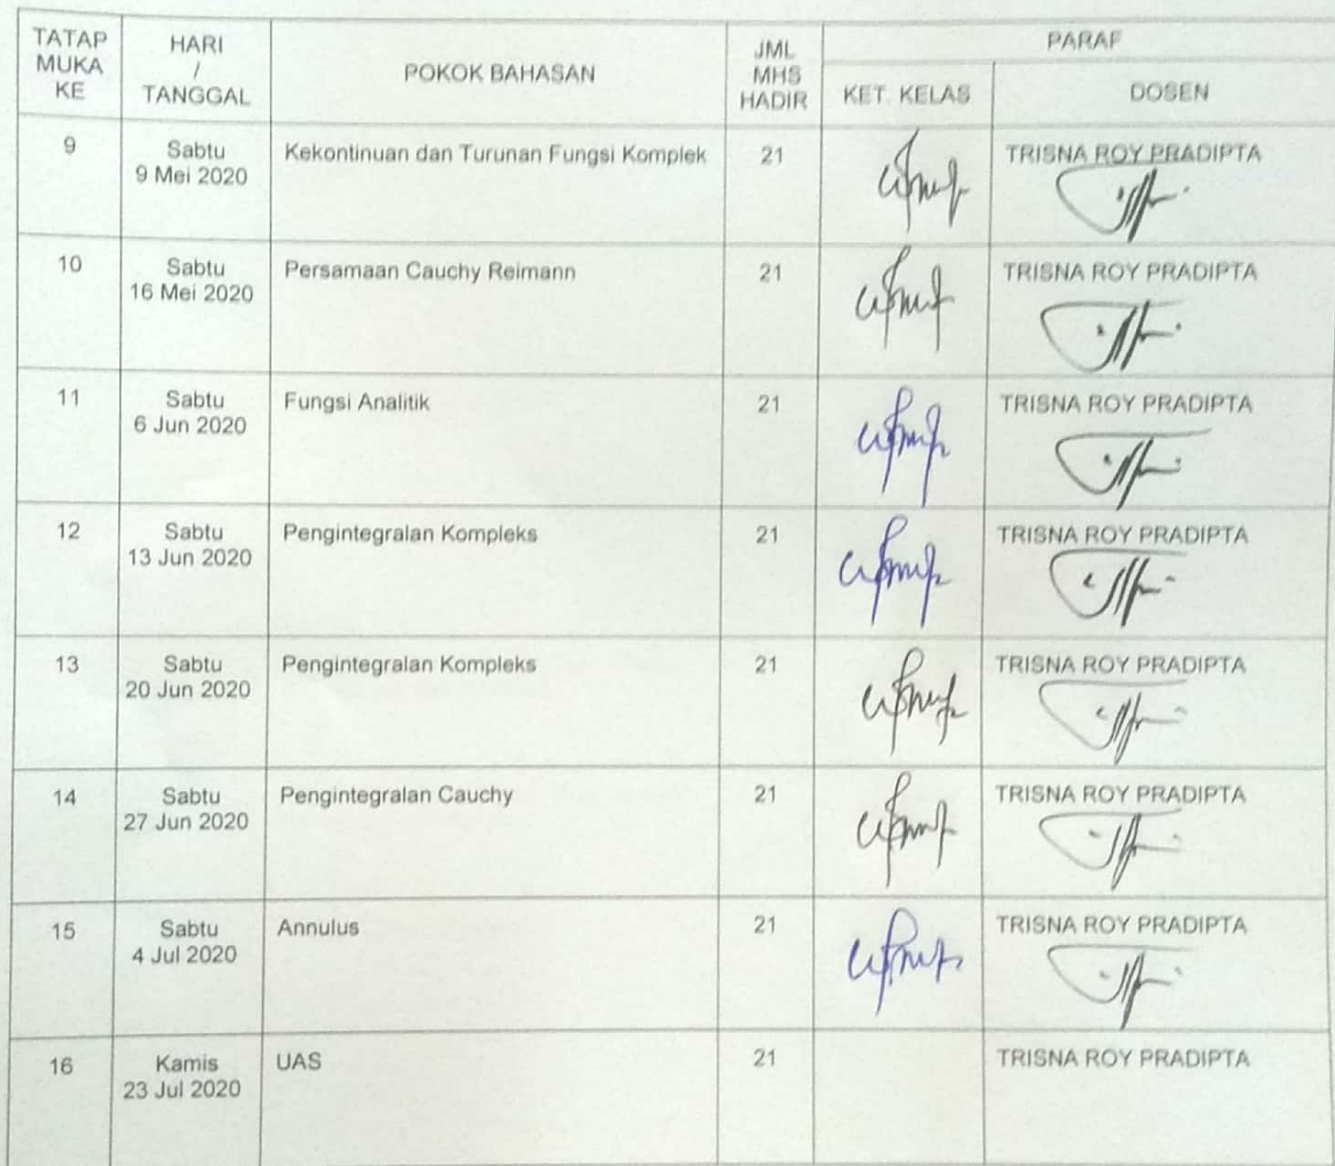 TATAP
MUKA
KE
HARI
/
TANGGAL
POKOK BAHASAN
JML
MHS
HADIR
PARAF
KET. KELAS
DOSEN
9
Sabtu
9 Mei 2020
Kekontinuan dan Turunan Fungsi Komplek
21
TRISNA ROY PRADIPTA
10
Sabtu
16 Mei 2020
Persamaan Cauchy Reimann
21
TRISNA ROY PRADIPTA
11
Sabtu
6 Jun 2020
Fungsi Analitik
21
TRISNA ROY PRADIPTA
12
Sabtu
13 Jun 2020
Pengintegralan Kompleks
21
TRISNA ROY PRADIPTA
13
Sabtu
20 Jun 2020
Pengintegralan Kompleks
21
TRISNA ROY PRADIPTA
14
Sabtu
27 Jun 2020
Pengintegralan Cauchy
21
TRISNA ROY PRADIPTA
15
Sabtu
4 Jul 2020
Annulus
21
TRISNA ROY PRADIPTA
16
Kamis
23 Jul 2020
UAS
21
TRISNA ROY PRADIPTA